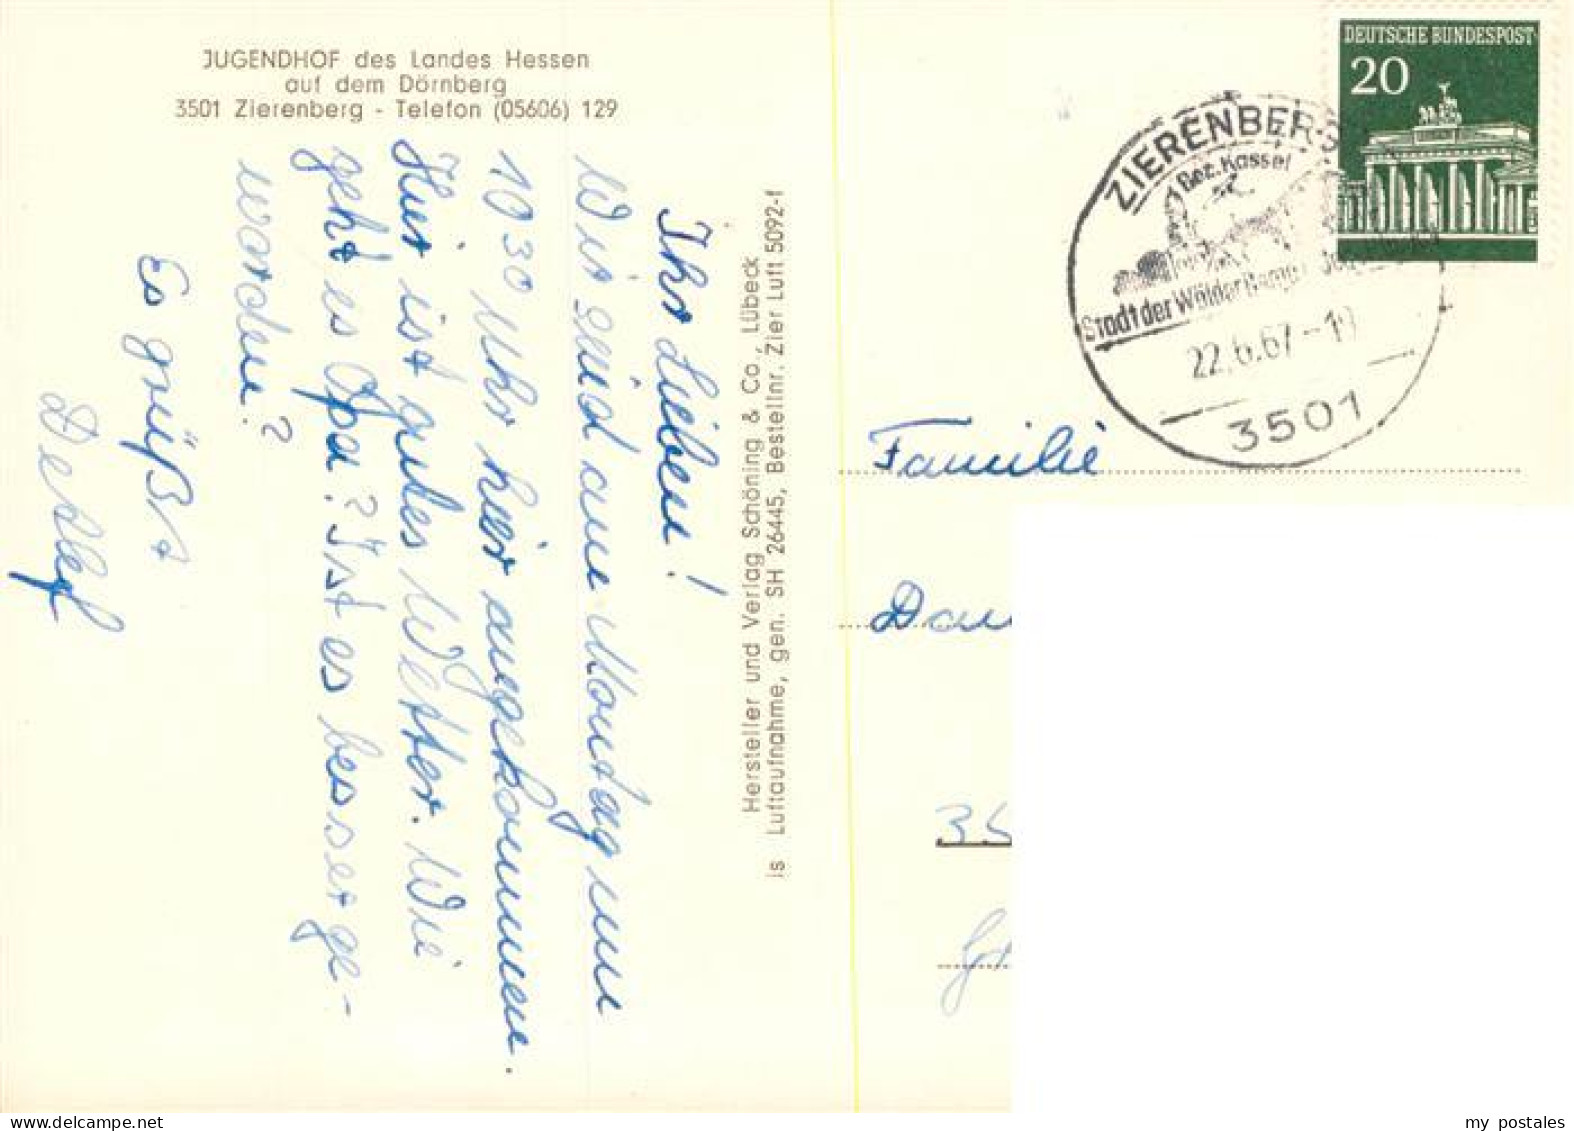 JUGENDHOF des Landes Hessen
auf dem Dörnberg
3501 Zierenberg - Telefon (05606) 129
Ihr Lieben!
Wir sind am Montag um
10 30 Uhr hier angekommen.
Hier ist gutes Wetter. Wie
geht es Opa? Ist es besser ge-
worden?
Es grüßt
Detlef
Hersteller und Verlag Schöning & Co., Lübeck
is Luftaufnahme, gen. SH 26445, Bestellnr. Zier Luft 5092-f
DEUTSCHE BUNDESPOST
20
ZIERENBERG
Bez. Kassel
Stadt der Wälder Berge
22.6.67-19
3501
Familie
Dau
35
my postales